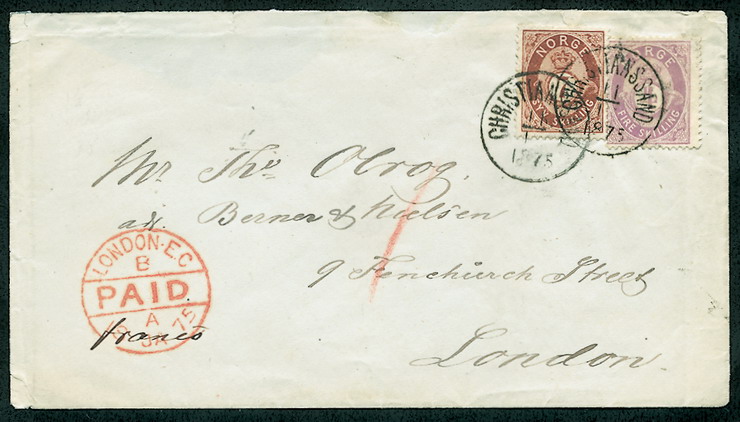 NORGE
SYV SKILLING
NORGE
FIRE SKILLING
CHRISTIAN
1875
CHRISTIANSSAND
11
1
1875
Mr Tho Olrog,
adr. Berner & Nielsen
9 Fenchurch Street
London.
LONDON·E.C
B
PAID
A
JA 75
franco